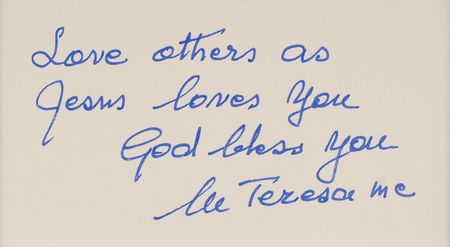 Love others as
Jesus loves You
God bless you
lu Teresa mc